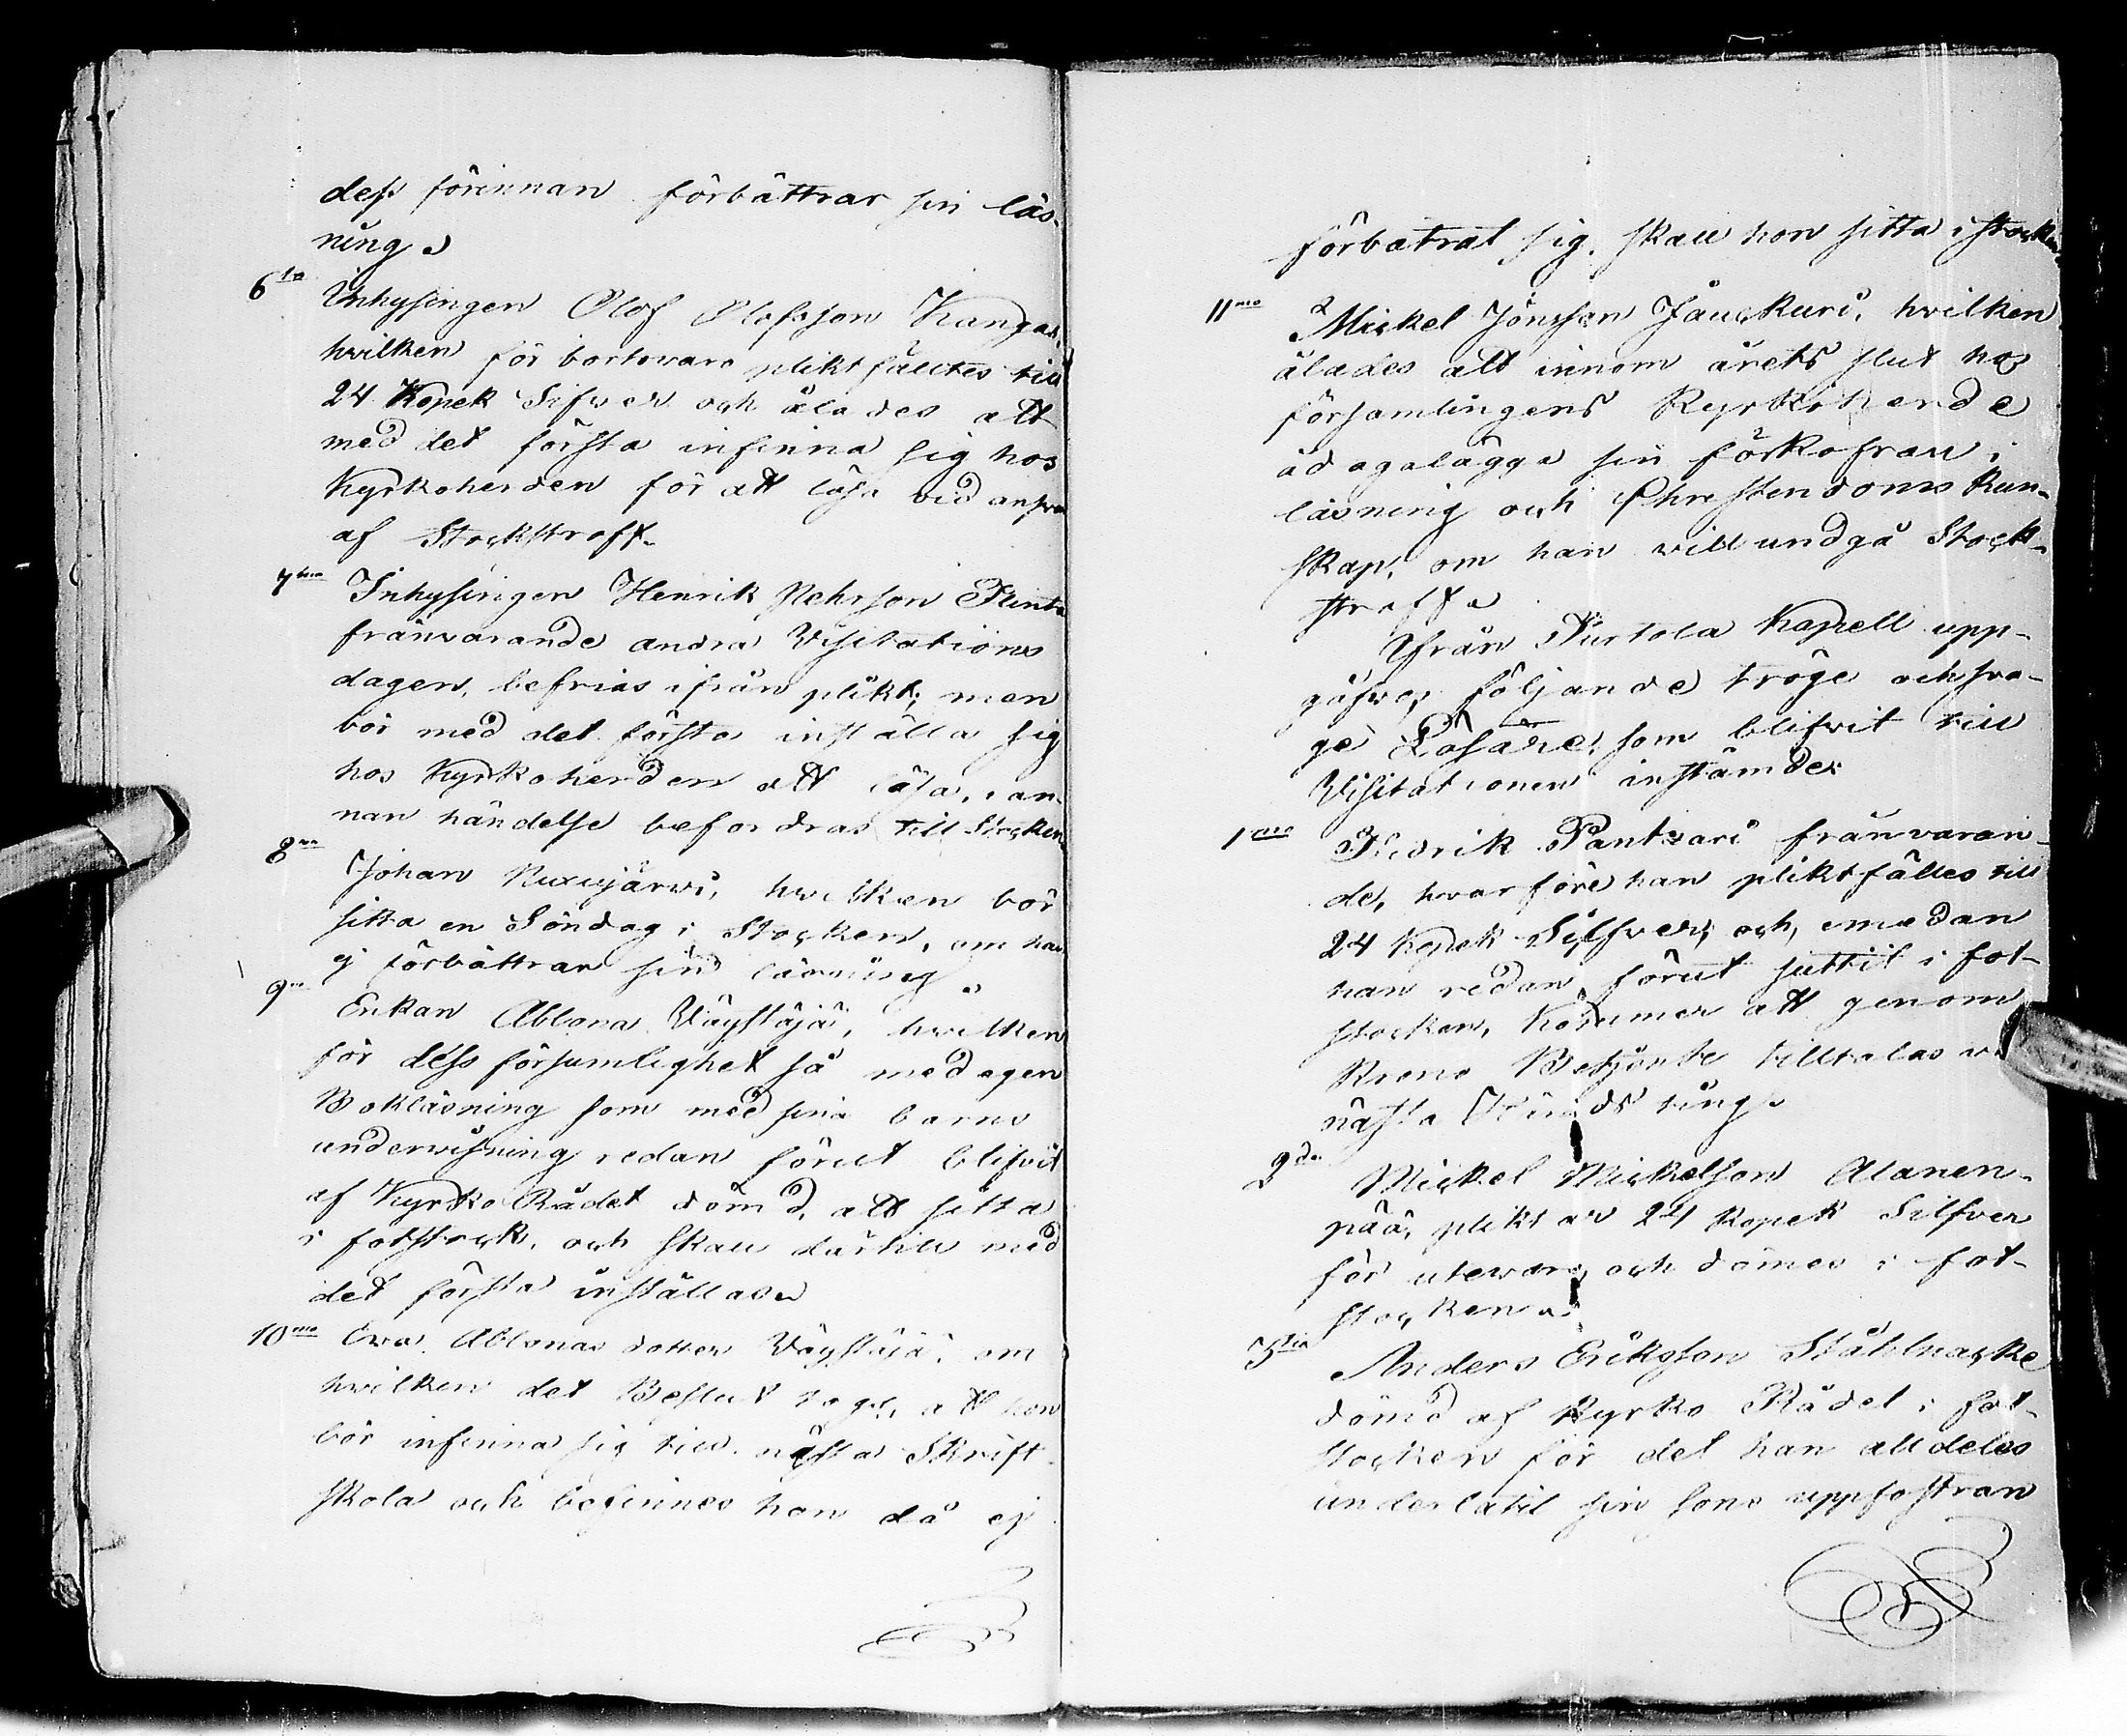 dess förinnan förbättrar sin läs-
ning.
6to Inhysingen Olof Olofsson Kangas,
hvilken för bortovaro pliktfälltes till
24 Kopek Silfwer och ålades att
med det första infinna sig hos
Kyrkoherden för att läsa vid answar
af Stockstraff.
7mo Inhysingen Henrik Pehrsson
frånvarande andra Visitations
dagen, befrias ifrån plikt; men
bör med det första inställa sig
hos Kyrkoherden att läsa, i an-
nan händelse befordras till Stocken
8vo Johan Ruxujärwi, hvilken bör
sitta en Söndag i Stocken, om han
ej förbättrar sin läsning.
9no Enkan Abbona Väystäjä, hvilken
för dess försumlighet så med egen
Bokläsning som med sina barns
underwisning redan förut blifvit
af KyrkoRådet dömd, att sitta
i fotstock, och skall därtill med
det första inställas.
10mo Eva Ablonas dotter Väystäjä, om
hvilken det Beslut togs, att hon
bör infinna sig till nästa Skrift
skola och befinnes hon då ej
förbätrat sig, skall hon sitta i stocken
11mo Mickel Jönsson Jauckuri, hvilken
ålades att innom årets slut hos
församlingens Kyrkoherde
ådagalägga sin förkofran i
läsning och Christendoms kun-
skap, om han vill undgå Stock-
straff.
Ifrån Turtola Kapell upp-
gåfvos följande tröge och sva-
ge Läsare, som blifvit till
Visitationen instämde:
1mo Fredrik Pantsari frånvaran-
de, hvarföre han pliktfälles till
24 kopek Silfver, och, emedan
han redan förut suttit i fot-
stocken, kommer att genom
Krono Betjänte tilltalas vi
nästa Härads ting.
2do Mickel Mickelson Alanen-
pää, pliktar 24 kopek Silfver
för utevaro, och dömes i fot-
stocken.
3tio Anders Eriksson Stålnacke
dömd af Kyrko Rådet i fot-
stocken för det han alldeles
underlåtit sin sons uppfostran